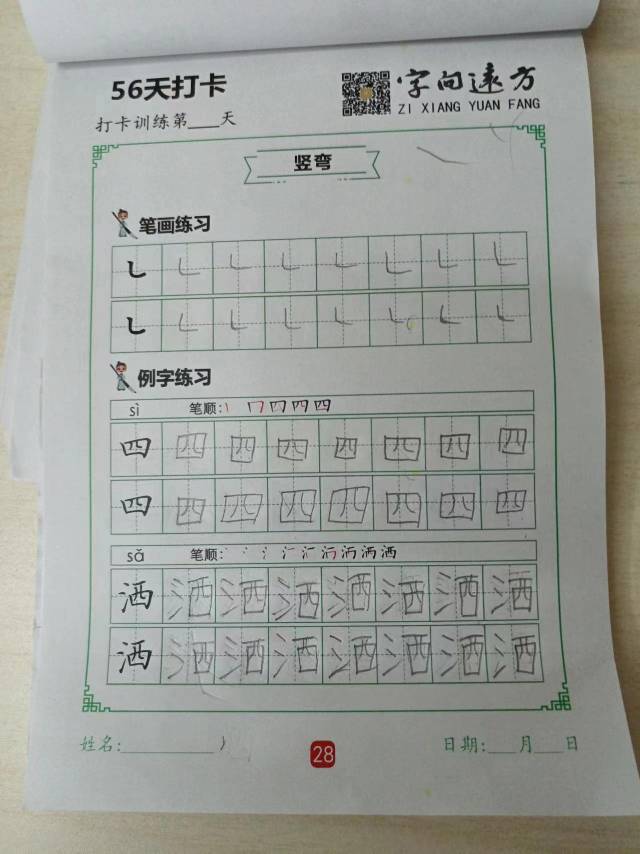 56天打卡
字向远方
ZI XIANG YUAN FANG
打卡训练第___天
竖弯
笔画练习
㇄ ㇄ ㇄ ㇄ ㇄ ㇄ ㇄ ㇄
㇄ ㇄ ㇄ ㇄ ㇄ ㇄ ㇄ ㇄
例字练习
sì 笔顺:
四 四 四 四 四 四 四 四
四 四 四 四 四 四 四 四
sǎ 笔顺:
洒 洒 洒 洒 洒 洒 洒 洒
洒 洒 洒 洒 洒 洒 洒 洒
姓名:__________ 28 日期:___月___日